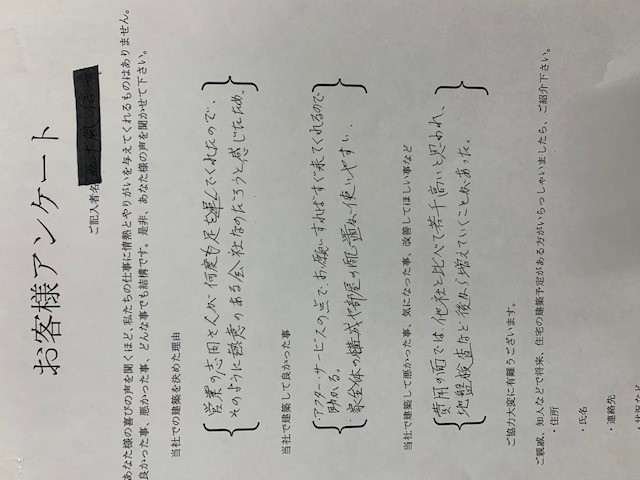 お客様アンケート
ご記入者名
あなた様の喜びの声を聞くほど、私たちの仕事に情熱とやりがいを与えてくれるものはありません。
良かった事、悪かった事、どんな事でも結構です。是非、あなた様の声を聞かせて下さい。
当社での建築を決めた理由
営業の志田さんが何度も足を運んでくれたので、
そのように熱意のある会社なのだろうと感じたため。
当社で建築して良かった事
・アフターサービスの点で、お願いすればすぐ来てくれるので
助かる。
・家全体の構成や部屋の配置が使いやすい。
当社で建築して悪かった事、気になった事、改善してほしい事など
費用の面では他社と比べて若干高いと思われ、
地盤検査など後から増えていくことがあった。
ご協力大変に有難うございます。
ご親戚、知人などで将来、住宅の建築予定がある方がいらっしゃいましたら、ご紹介下さい。
・住所
・氏名
・連絡先